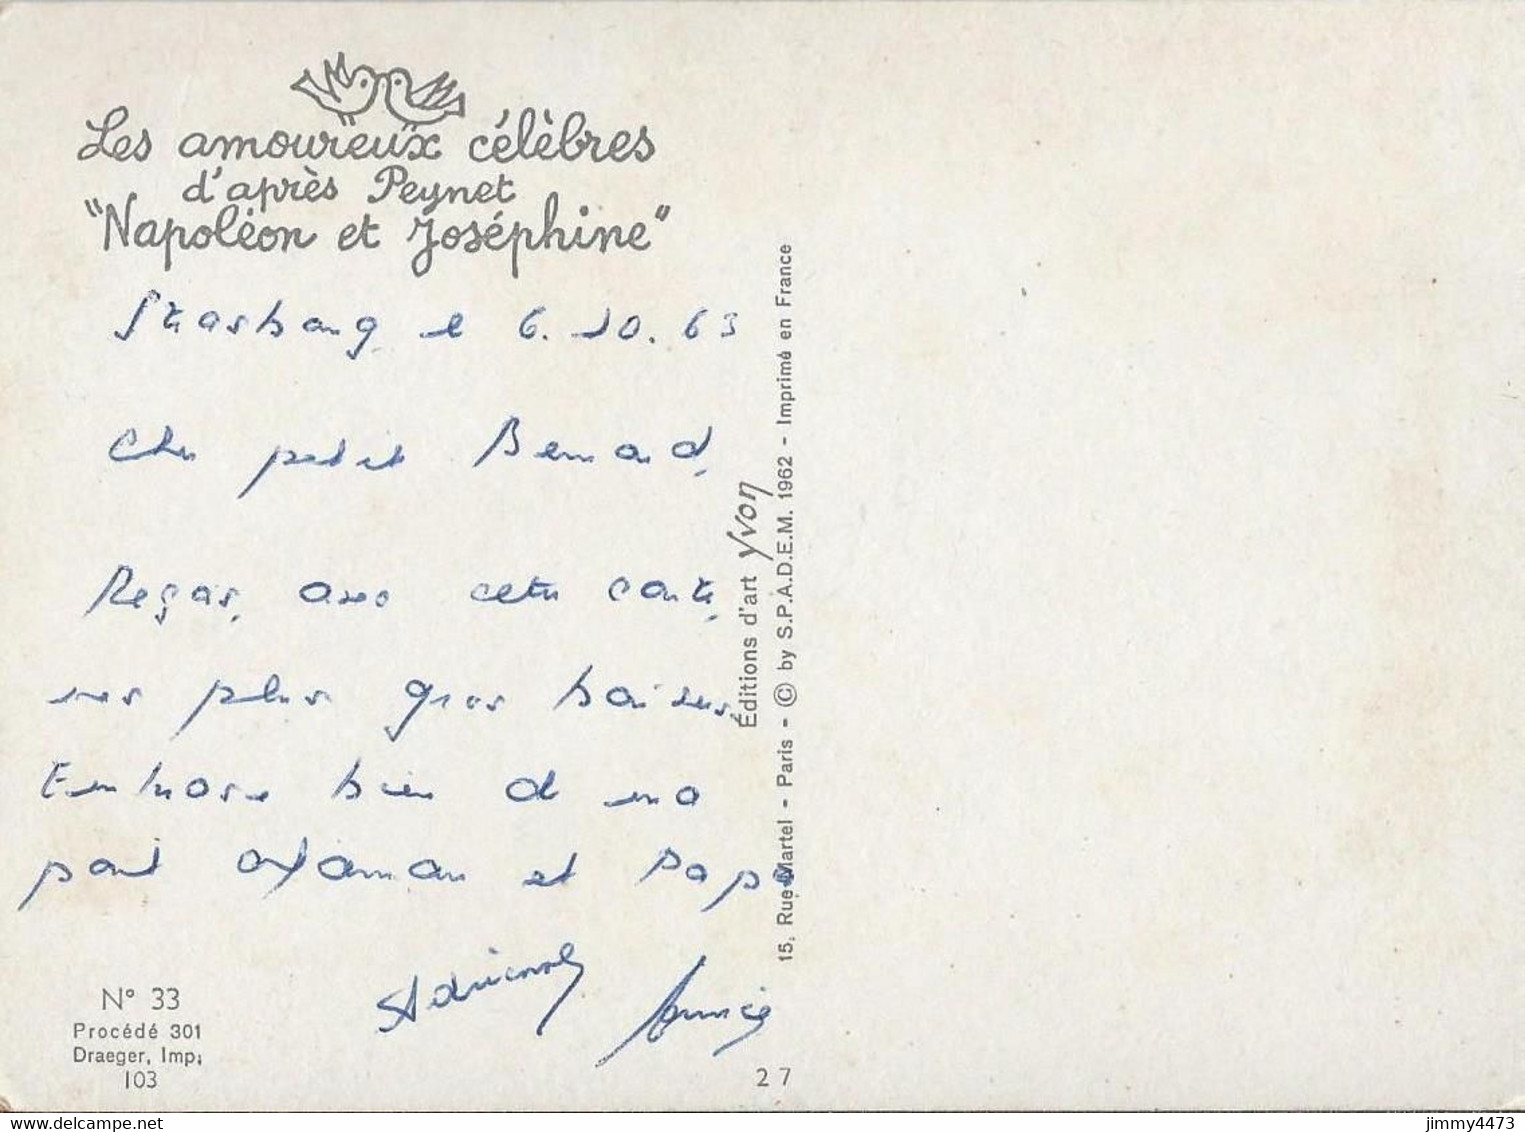 Les amoureux célèbres
d'après Peynet
"Napoléon et Joséphine"
Strasbourg le 6.10.63
Cher petit Bernard,
Reçois avec cette carte,
nos plus gros baisers.
Embrasse bien de ma
part Maman et Papa
Annie
Éditions d'art Yvon
15, Rue Martel - Paris - © by S.P.A.D.E.M. 1962 - Imprimé en France
N° 33
Procédé 301
Draeger, Imp;
103
27
jimmy4473
www.delcampe.net